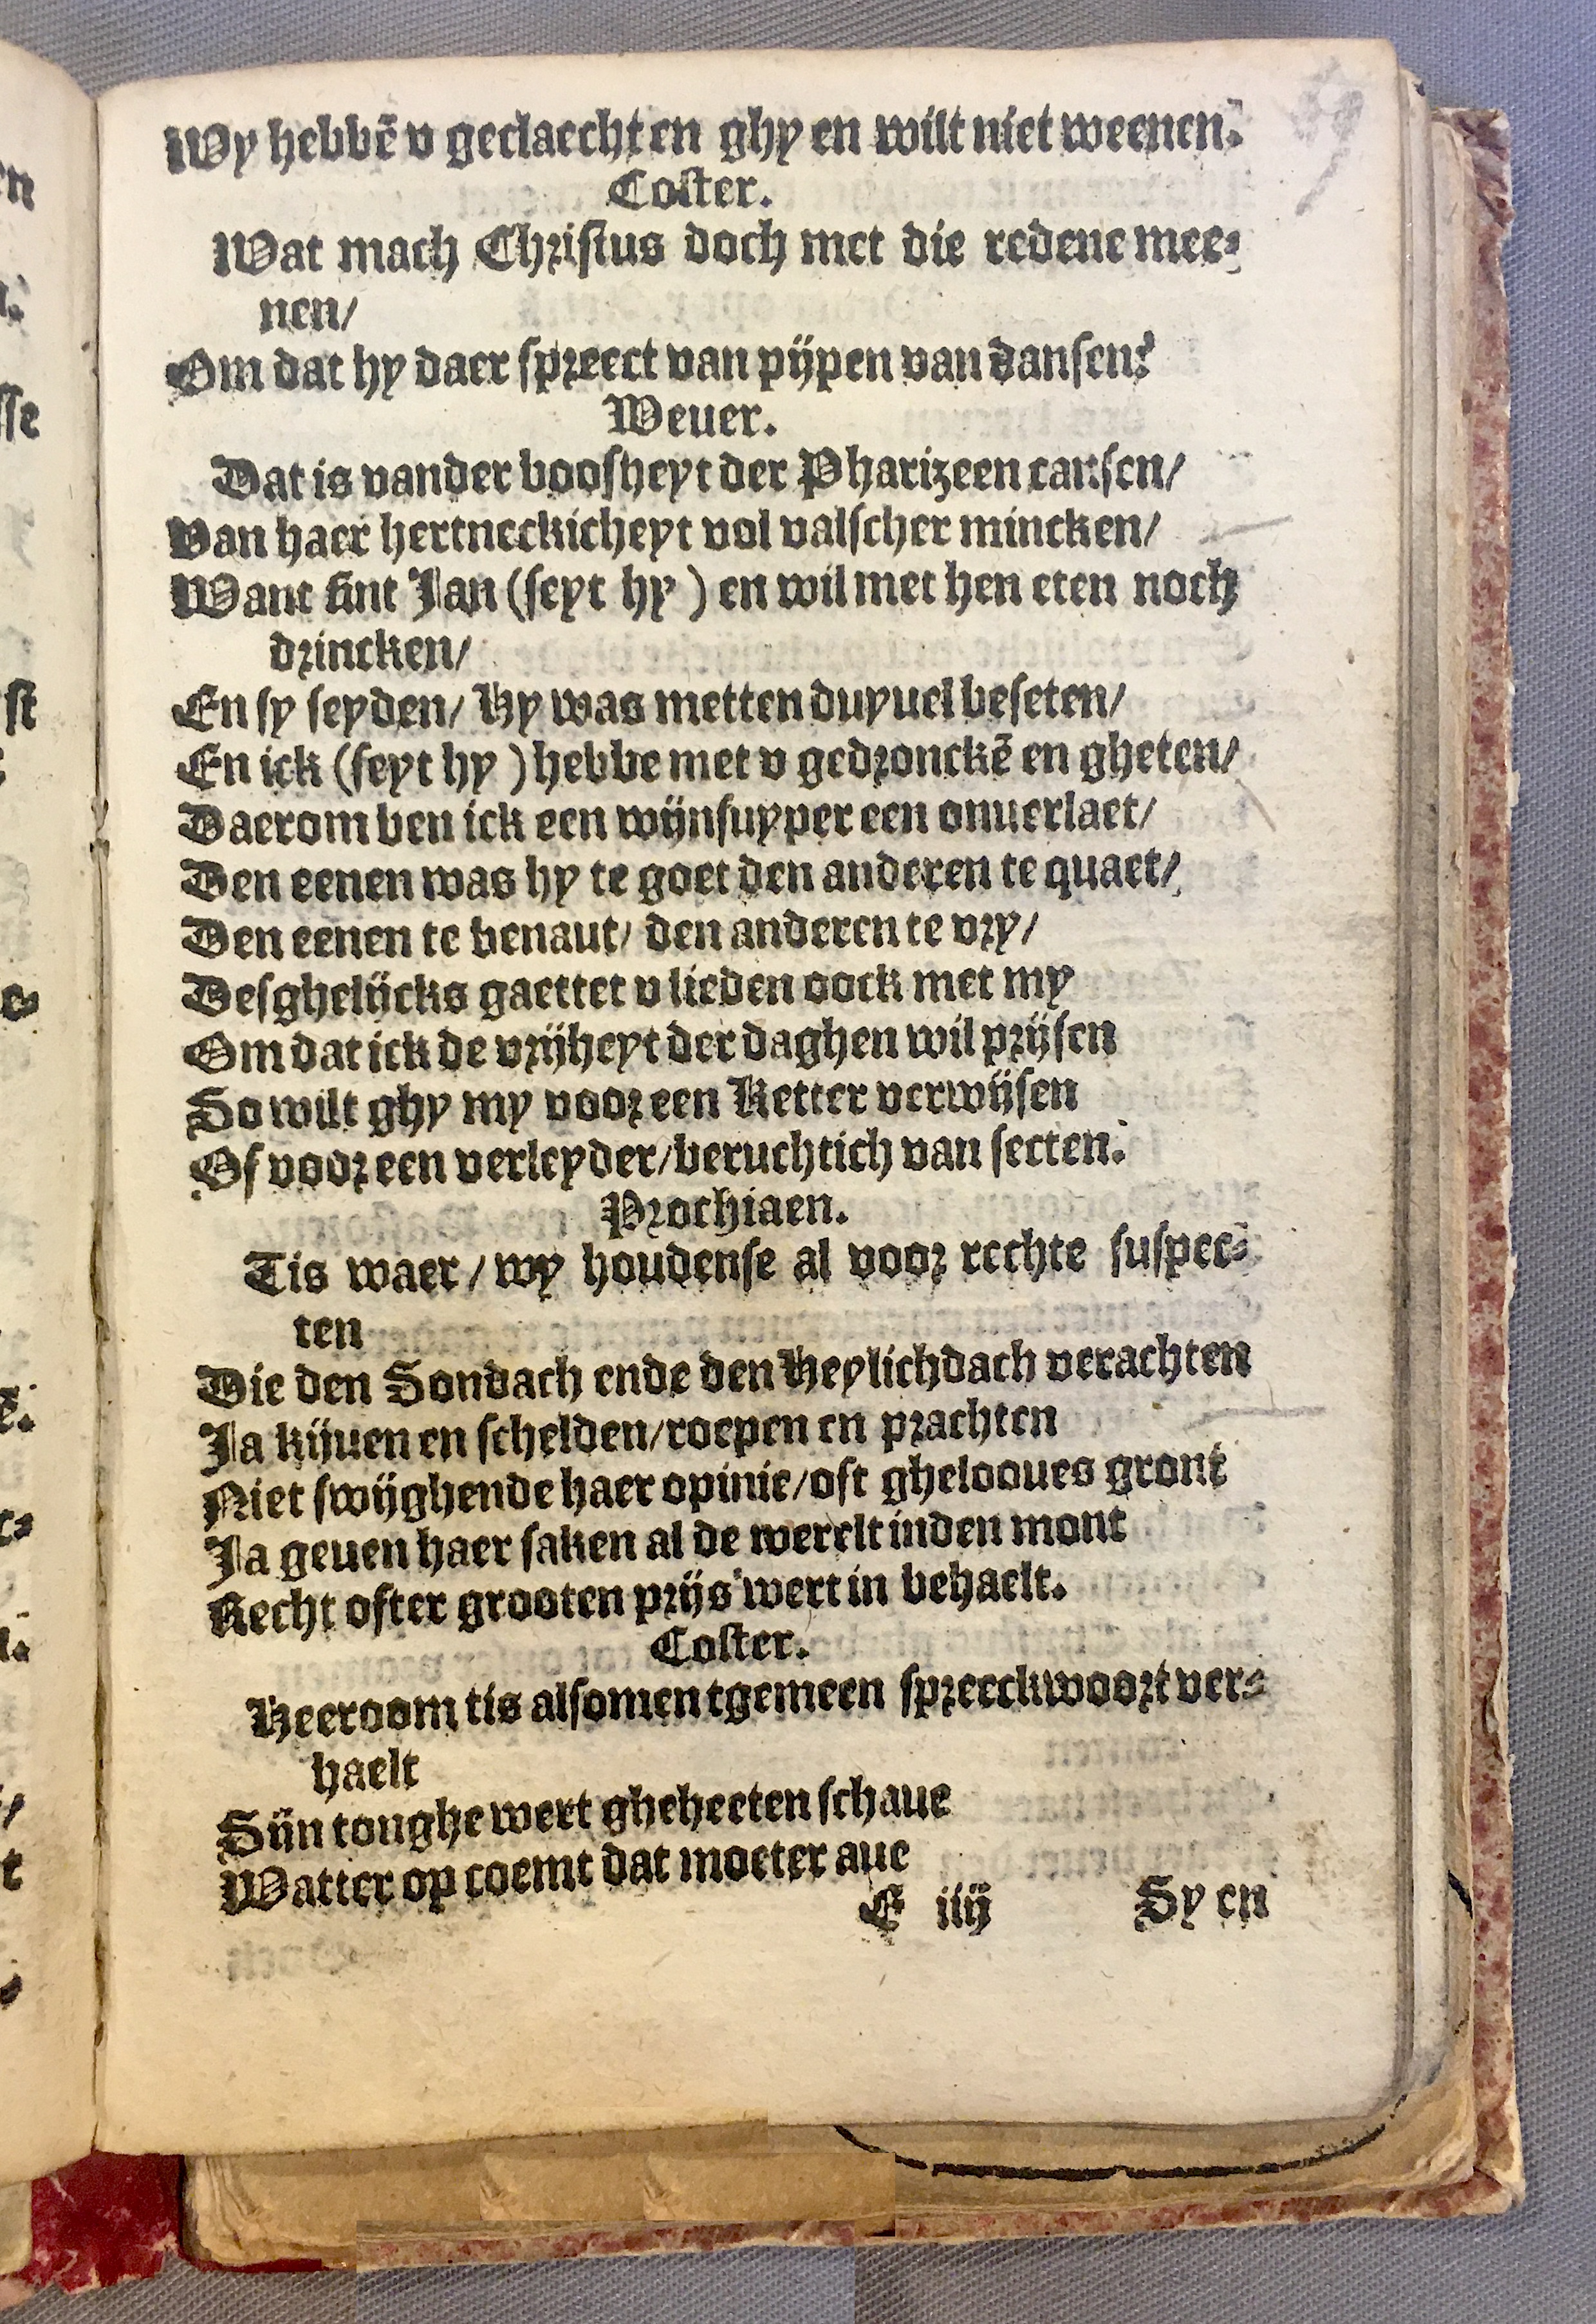 Wy hebbē v geclaecht en ghy en wilt niet weenen.
Coster.
Wat mach Christus doch met die redene mee-
nen/
Om dat hy daer spreect van pijpen van dansen?
Weuer.
Dat is vander boosheyt der Pharizeen cansen/
Van haer hertneckicheyt vol valscher mincken/
Want sint Jan (seyt hy) en wil met hen eten noch
drincken/
En sy seyden/ Hy was metten duyuel beseten/
En ick (seyt hy) hebbe met v gedronckē en gheten/
Daerom ben ick een wijnsuyper een onuerlaet/
Den eenen was hy te goet den anderen te quaet/
Den eenen te benaut/ den anderen te vry/
Desghelijcks gaettet v lieden oock met my
Om dat ick de vrijheyt der daghen wil prijsen
So wilt ghy my voor een Ketter verwijsen
Of voor een verleyder/beruchtich van secten.
Prochiaen.
Tis waer/wy houdense al voor rechte suspec-
ten
Die den Sondach ende den Heylichdach verachten
Ja kijuen en schelden/roepen en prachten
Niet swijghende haer opinie/oft ghelooues gront
Ja geuen haer saken al de werelt inden mont
Recht ofter grooten prijs wert in behaelt.
Coster.
Heeroom tis also men tgemeen spreeckwoort ver-
haelt
Sijn tonghe wert gheheeten schaue
Watter op coemt dat moeter aue
E iiij Sy en